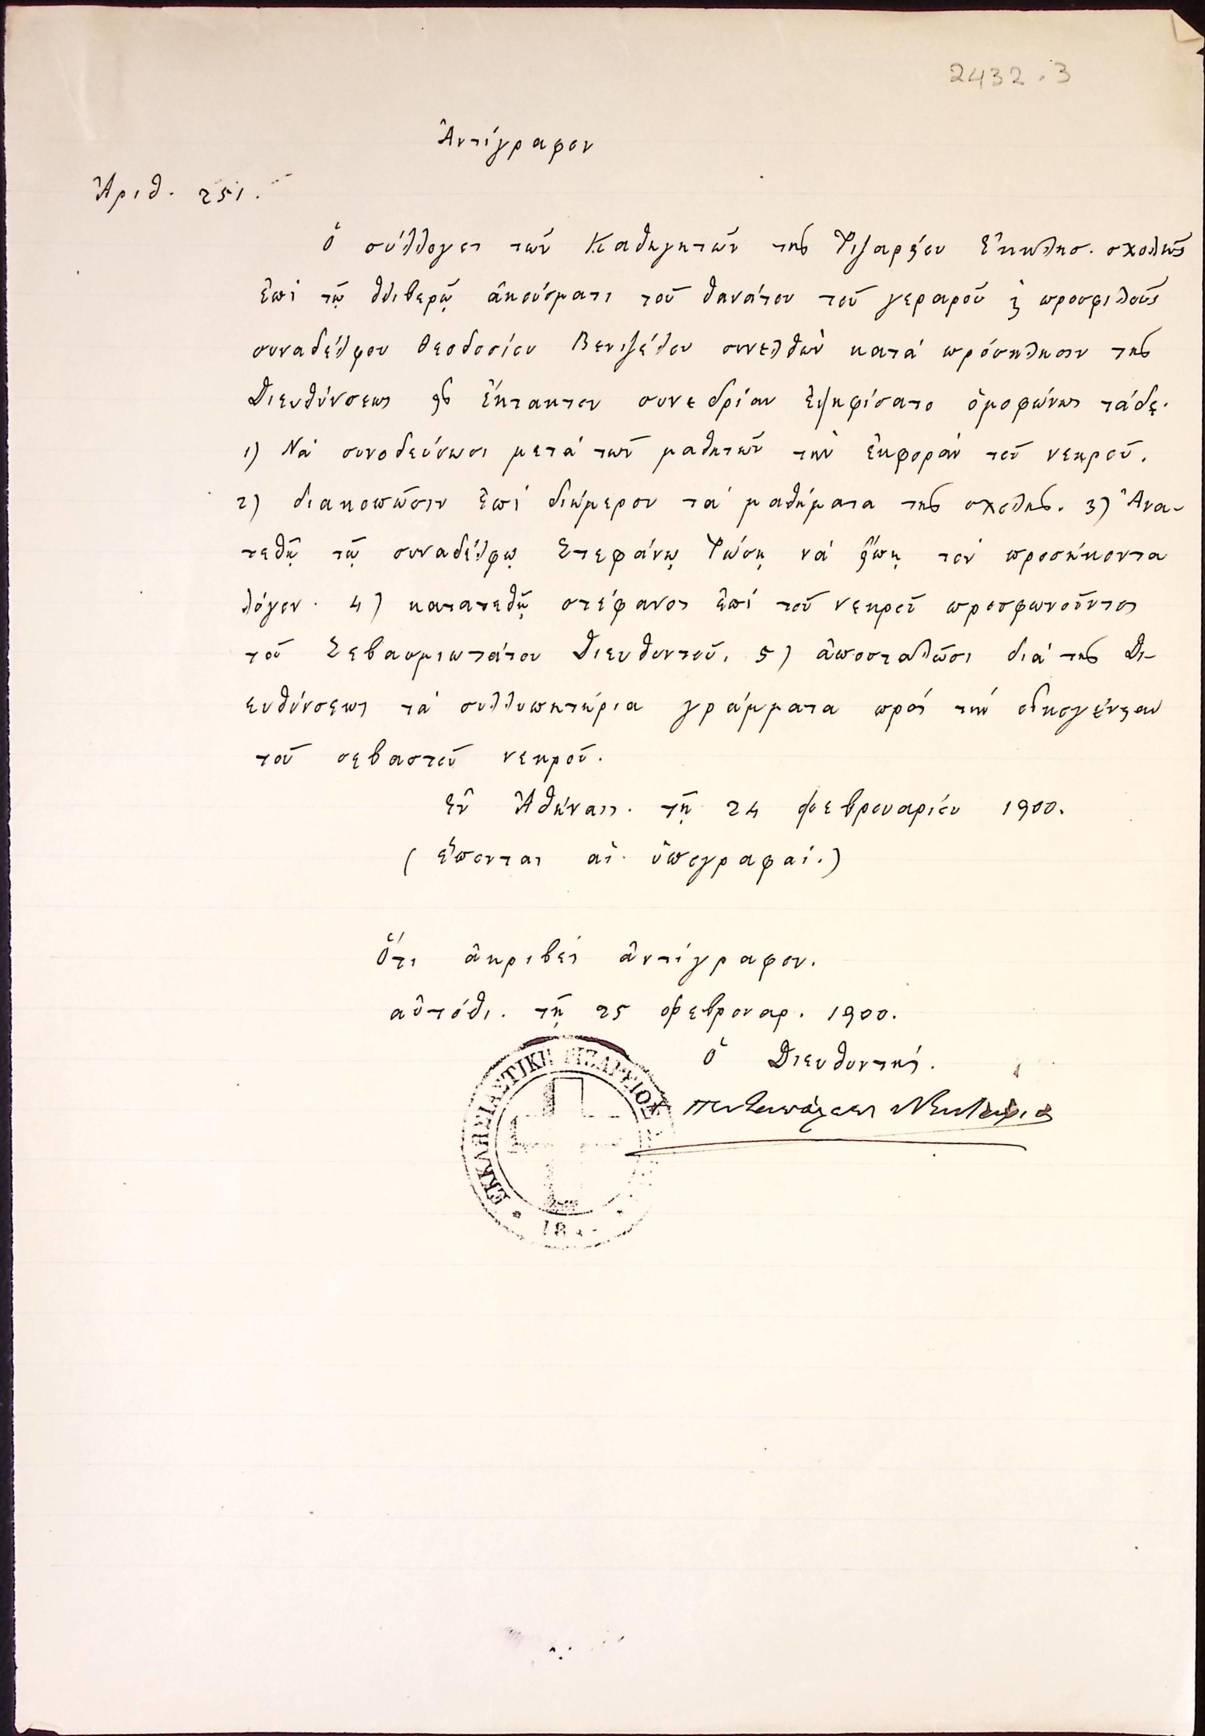 2432.3
Ἀντίγραφον
Ἀριθ. 251.
Ὁ σύλλογος τῶν Καθηγητῶν τῆς Ῥιζαρείου Ἐκκλησ. σχολῆς
ἐπὶ τῷ θλιβερῷ ἀκούσματι τοῦ θανάτου τοῦ γεραροῦ ϗ προσφιλοῦς
συναδέλφου Θεοδοσίου Βενιζέλου συνελθὼν κατὰ πρόσκλησιν τῆς
Διευθύνσεως εἰς ἔκτακτον συνεδρίαν ἐψηφίσατο ὁμοφώνως τάδε.
1) Νὰ συνοδεύσωσι μετὰ τῶν μαθητῶν τὴν ἐκφορὰν τοῦ νεκροῦ.
2) διακοπῶσιν ἐπὶ διήμερον τὰ μαθήματα τῆς σχολῆς. 3) Ἀνα-
τεθῇ τῷ συναδέλφῳ Στεφάνῳ Ῥώσῃ νὰ εἴπῃ τὸν προσήκοντα
λόγον. 4) κατατεθῇ στέφανος ἐπὶ τοῦ νεκροῦ προσφωνοῦντος
τοῦ Σεβασμιωτάτου Διευθυντοῦ. 5) ἀποσταλῶσι διὰ τῆς Δι-
ευθύνσεως τὰ συλλυπητήρια γράμματα πρὸς τὴν οἰκογένειαν
τοῦ σεβαστοῦ νεκροῦ.
Ἐν Ἀθήναις. τῇ 24 Φεβρουαρίου 1900.
(ἕπονται αἱ ὑπογραφαί.)
Ὅτι ἀκριβὲς ἀντίγραφον.
αὐτόθι. τῇ 25 Φεβρουαρ. 1900.
Ὁ Διευθυντής.
Πενταπόλεως Νεκτάριος
ΕΚΚΛΗΣΙΑΣΤΙΚΗ ΡΙΖΑΡΕΙΟΣ